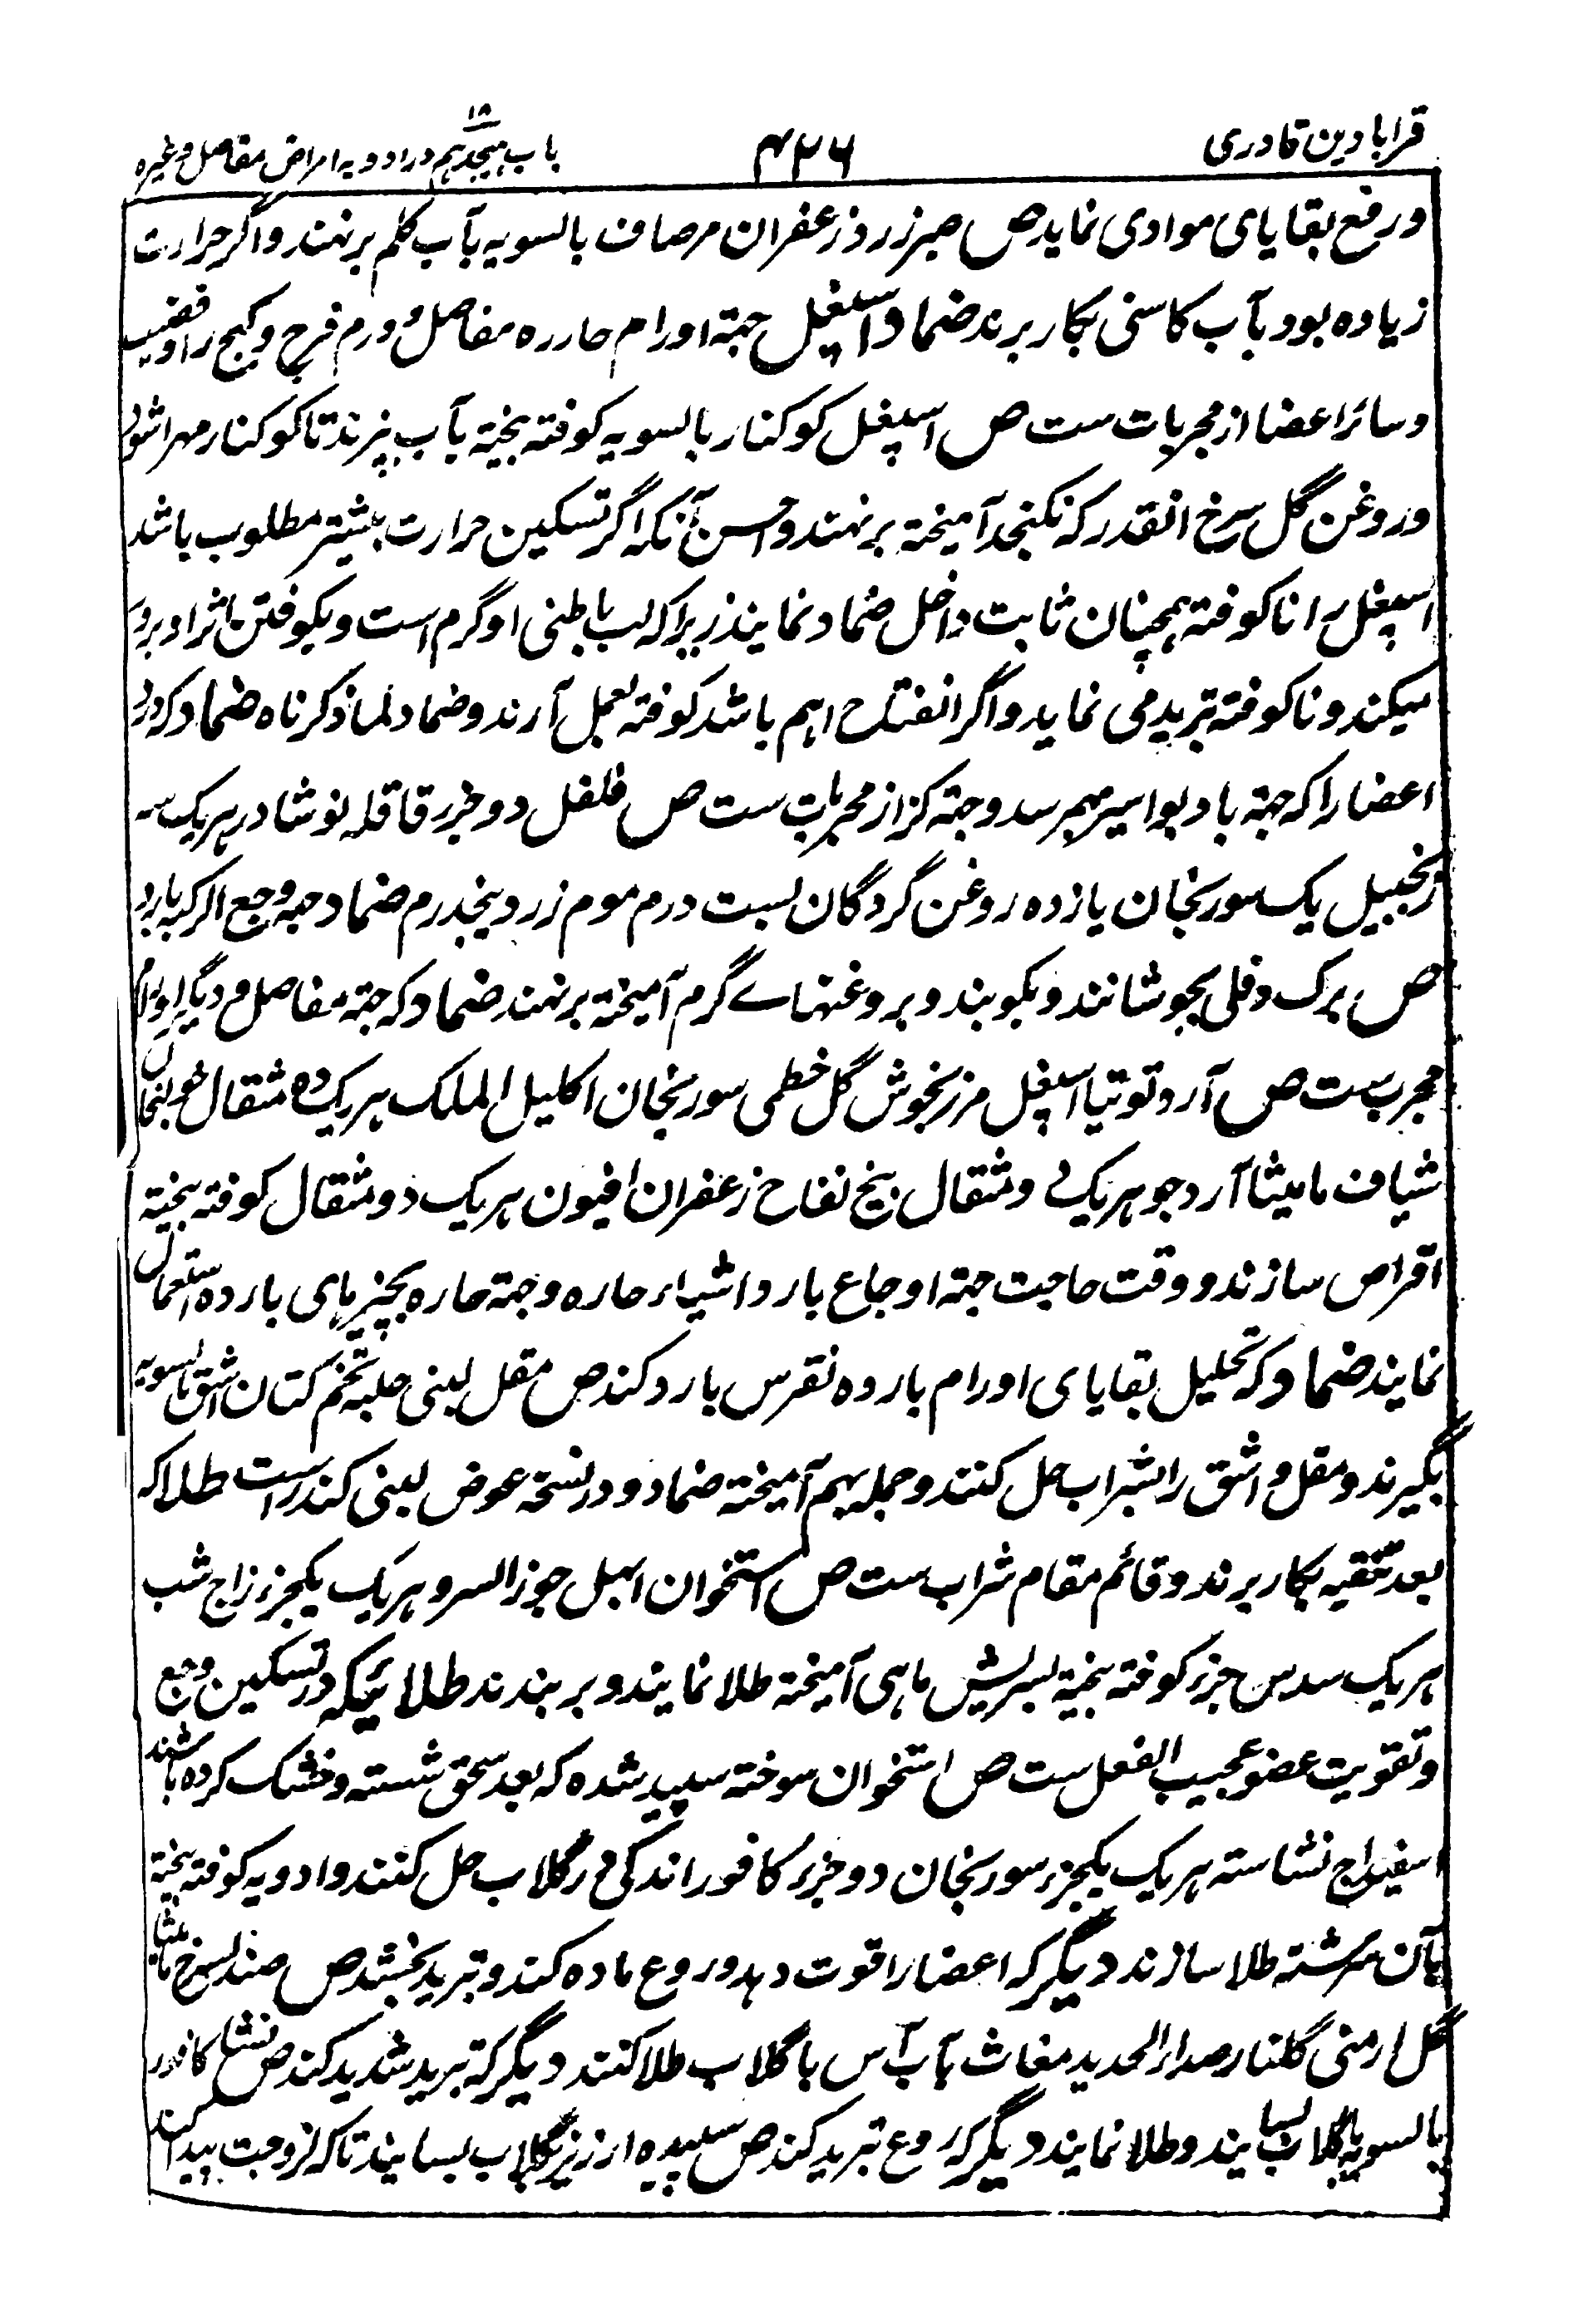 قرابادین قادری
۴۲۶
باب هیجدهم در ادویه امراض مفاصل وغیره
۱۸
ورفع بقایای موادی نماید ص صبر زرد زعفران مرصاف بالسویه بآب کلم برنهند واگر حرارت
زیاده بود بآب کاسنی بکار برند ضماد اسپغل جهة اورام حاره مفاصل ورم فرج و کبج ران وقضیب
وسائر اعضا از مجربات ست ص اسپغل کوکنار بالسویه کوفته بیخته بآب بپزند تا کوکنار مهرا شود
وروغن گل سرخ انقدر که بگنجد آمیخته برنهند واحسن آنکه اگر تسکین حرارت بیشتر مطلوب باشد
اسپغل را ناکوفته همچنان ثابت داخل ضماد نمایند زیرا که لب باطنی او گرم است وبکوفتن اثر او بروز
میکند و ناکوفته تبرید می نماید واگر انفتاح اهم باشد کوفته بعمل آرند وضماد لما ذکرناه ضماد که درد
اعضا را که جهة باد بواسیر بهم رسد وجهة کزاز مجربات ست ص فلفل دو جزر قاقله نوشادر هریک سه
زنجبیل یک سورنجان یازده روغن گردگان بست درم موم زرد پنجدرم ضماد جهة وجع الرکبه بارد
ص برک دفلی بجوشانند وبکوبند وبروغنهاے گرم آمیخته برنهند ضماد که جهة مفاصل ودیگر اورام
مجرب ست ص آرد توتیا اسپغل مرزنجوش گل خطمی سورنجان اکلیل الملک هریک ده مثقال خولنجان
شیاف مامیثا آرد جو هریک دو مثقال بیخ تفاح زعفران افیون هریک دو مثقال کوفته بیخته
اقراص سازند و وقت حاجت جهة اوجاع بارد اشیاء حاره وجهة حاره بچیزهای بارده استعمال
نمایند ضماد که تحلیل بقایای اورام بارده نقرس بارد کند ص مقل لبنی حلبه تخم کتان اشق بالسویه
بگیرند ومقل و اشق را بشراب حل کنند وجمله بهم آمیخته ضماد و در نسخه عوض لبنی کندر است طلا که
بعد تنقیه بکار برند و قائم مقام شراب ست ص استخوان ابهل جوز السرو هریک یکجزء زاج شب
هریک سدس جزء کوفته بیخته بسریش ماهی آمیخته طلا نمایند و بر بندند طلائیکه در تسکین وجع
وتقویت عضو عجیب الفعل ست ص استخوان سوخته سپید شده که بعد سحق شسته وخشک کرده باشند
اسفیداج نشاسته هریک یکجزء سورنجان دو جزء کافور اندکی در گلاب حل کنند وادویه کوفته بیخته
بآن سرشته طلا سازند دیگر که اعضا را قوت دهد وردع ماده کند وتبرید بخشد ص صندل سرخ مامیثا
گل ارمنی گلنار صداء الحدید مغاث بآب آس یا گلاب طلا کنند دیگر که تبرید شدید کند ص نشا کافور
بالسویه بگلاب بسایند وطلا نمایند دیگر که ردع تبرید کند ص سپیده ارزیز بگلاب بسایند تاکه لزوجت پیدا کند